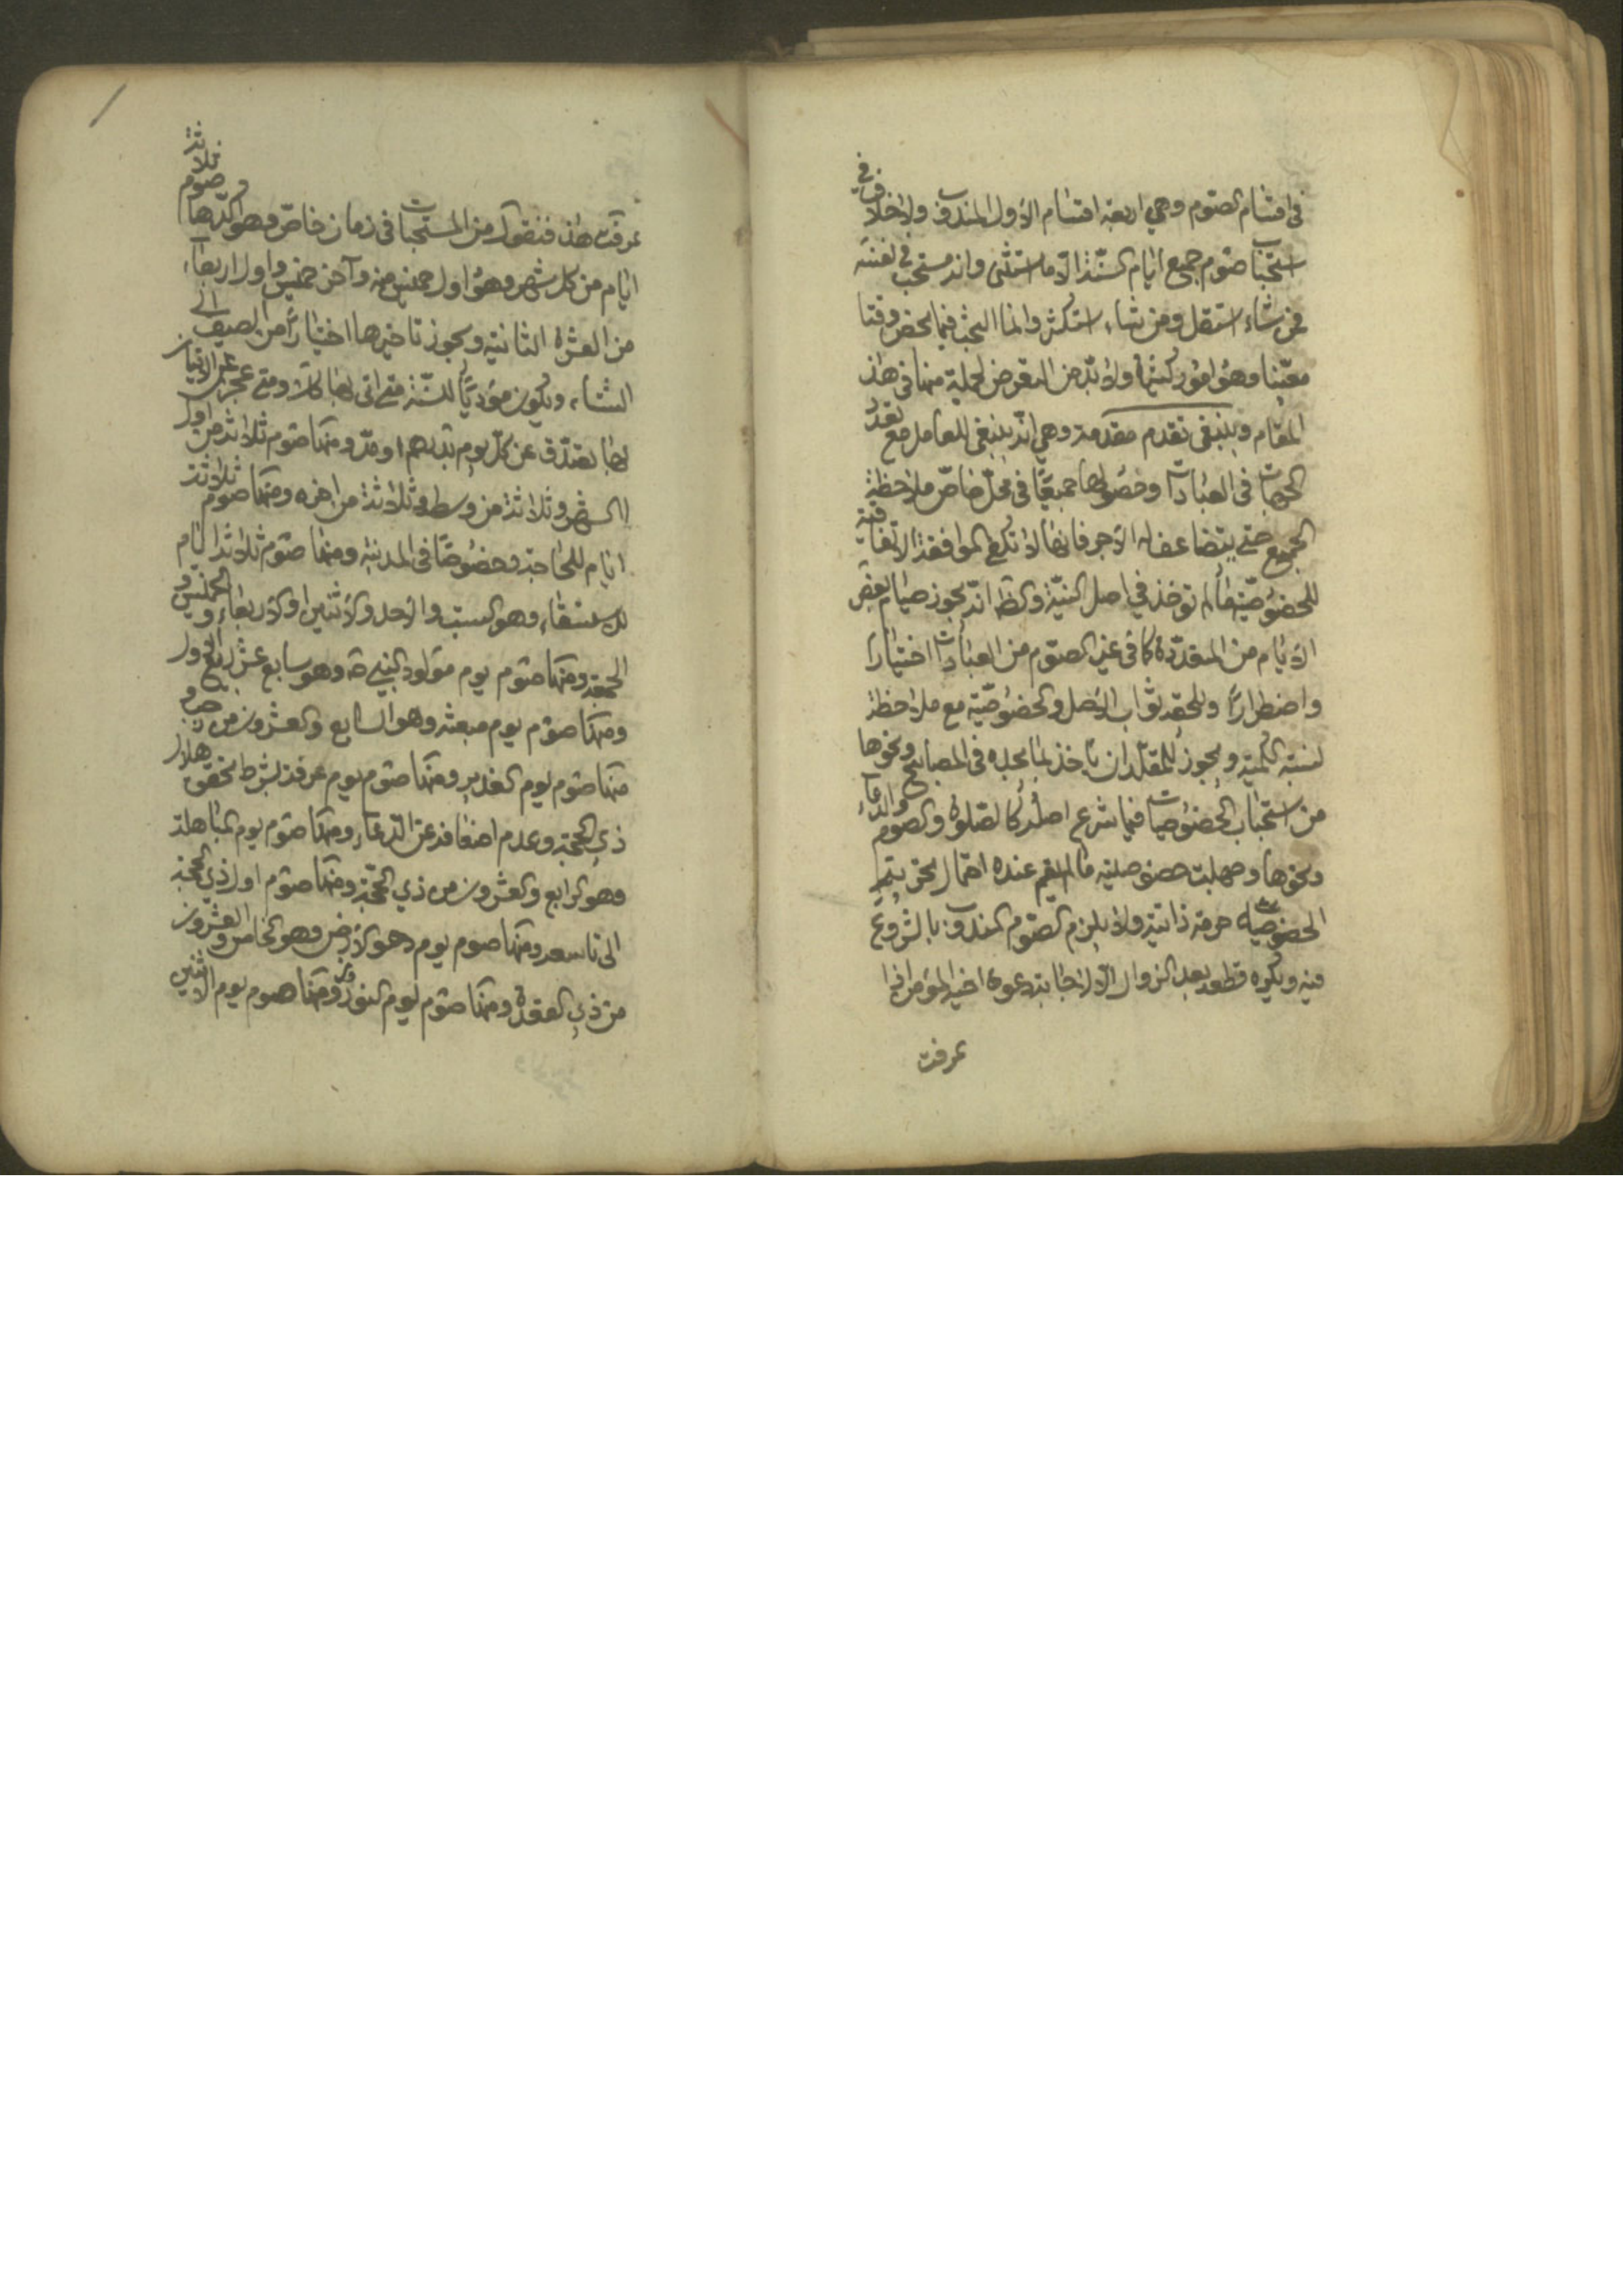 في اقسام الصوم وهي اربعة اقسام الاول المندوب ولا خلاف في
استحباب صوم جميع ايام السنة الا ما استثنى وانه مستحب في نفسه
فمن شاء استقل ومن شاء استكثر وانما البحث فيما يخص وقتا
معينا وهو امور كثيرة ولا بد من التعرض لجملة منها في هذا
المقام وينبغي تقدم مقدمة وهي انه ينبغي للعامل مع تعدد
الجهات في العبادات وحصولها جميعا في محل خاص ملاحظة
الجميع حتى يتضاعف له الاجر فانها لا تكفي الموافقة الاتفاقية
للخصوصية ما لم تؤخذ في اصل النية والظ انه يجوز صيام بعض
الايام من المتعددة كما في غير الصوم من العبادات اختيارا
واضطرارا وللحقه ثواب الاصل والخصوصية مع ملاحظة
نسبة الكلمية ويجوز للمقلد ان ياخذ بما يجده في المصابيح ونحوها
من استحباب الخصوصيات فيما شرع اصله كالصلوة والصوم والدعاء
ونحوها وجهلت خصوصيته ما لم يقم عنده احتمال تحريم
الخصوصية حرمة ذاتية ولا يلزم الصوم المندوب بالشروع
فيه ويكره قطعه بعد الزوال الا لاجابة دعوة اخيه المؤمن اذا
عرفت
عرفت هذا فنقول من المستحبات في زمان خاص وهو اكدها صوم ثلاثة
ايام من كل شهر وهو اول خميس منه وآخر خميس واول اربعاء
من العشرة الثانية ويجوز تاخيرها اختيارا من الصيف الى
الشتاء ويكون مؤديا للسنة متى اتى بها كانت ومتى عجز عن الاتيان
بها يصدق عن كل يوم بدرهم او مد ومنها صوم ثلاثة من اول
الشهر وثلاثة من وسطه وثلاثة من اخره ومنها صوم ثلاثة
ايام للحاجة وخصوصا في المدينة ومنها صوم ثلاثة ايام
للاستسقاء وهو السبت والاحد والاثنين او الاربعاء والخميس و
الجمعة ومنها صوم يوم مولود النبي ص وهو سابع عشر ربيع الاول
ومنها صوم يوم مبعثه وهو السابع والعشرون من رجب و
منها صوم يوم الغدير ومنها صوم يوم عرفة بشرط تحقق هلال
ذي الحجة وعدم اضعافه عن الدعاء ومنها صوم يوم المباهلة
وهو الرابع والعشرون من ذي الحجة ومنها صوم اول ذي الحجة
الى تاسعه ومنها صوم يوم دحو الارض وهو الخامس والعشرون
من ذي القعدة ومنها صوم يوم النوروز ومنها صوم يوم الاثنين